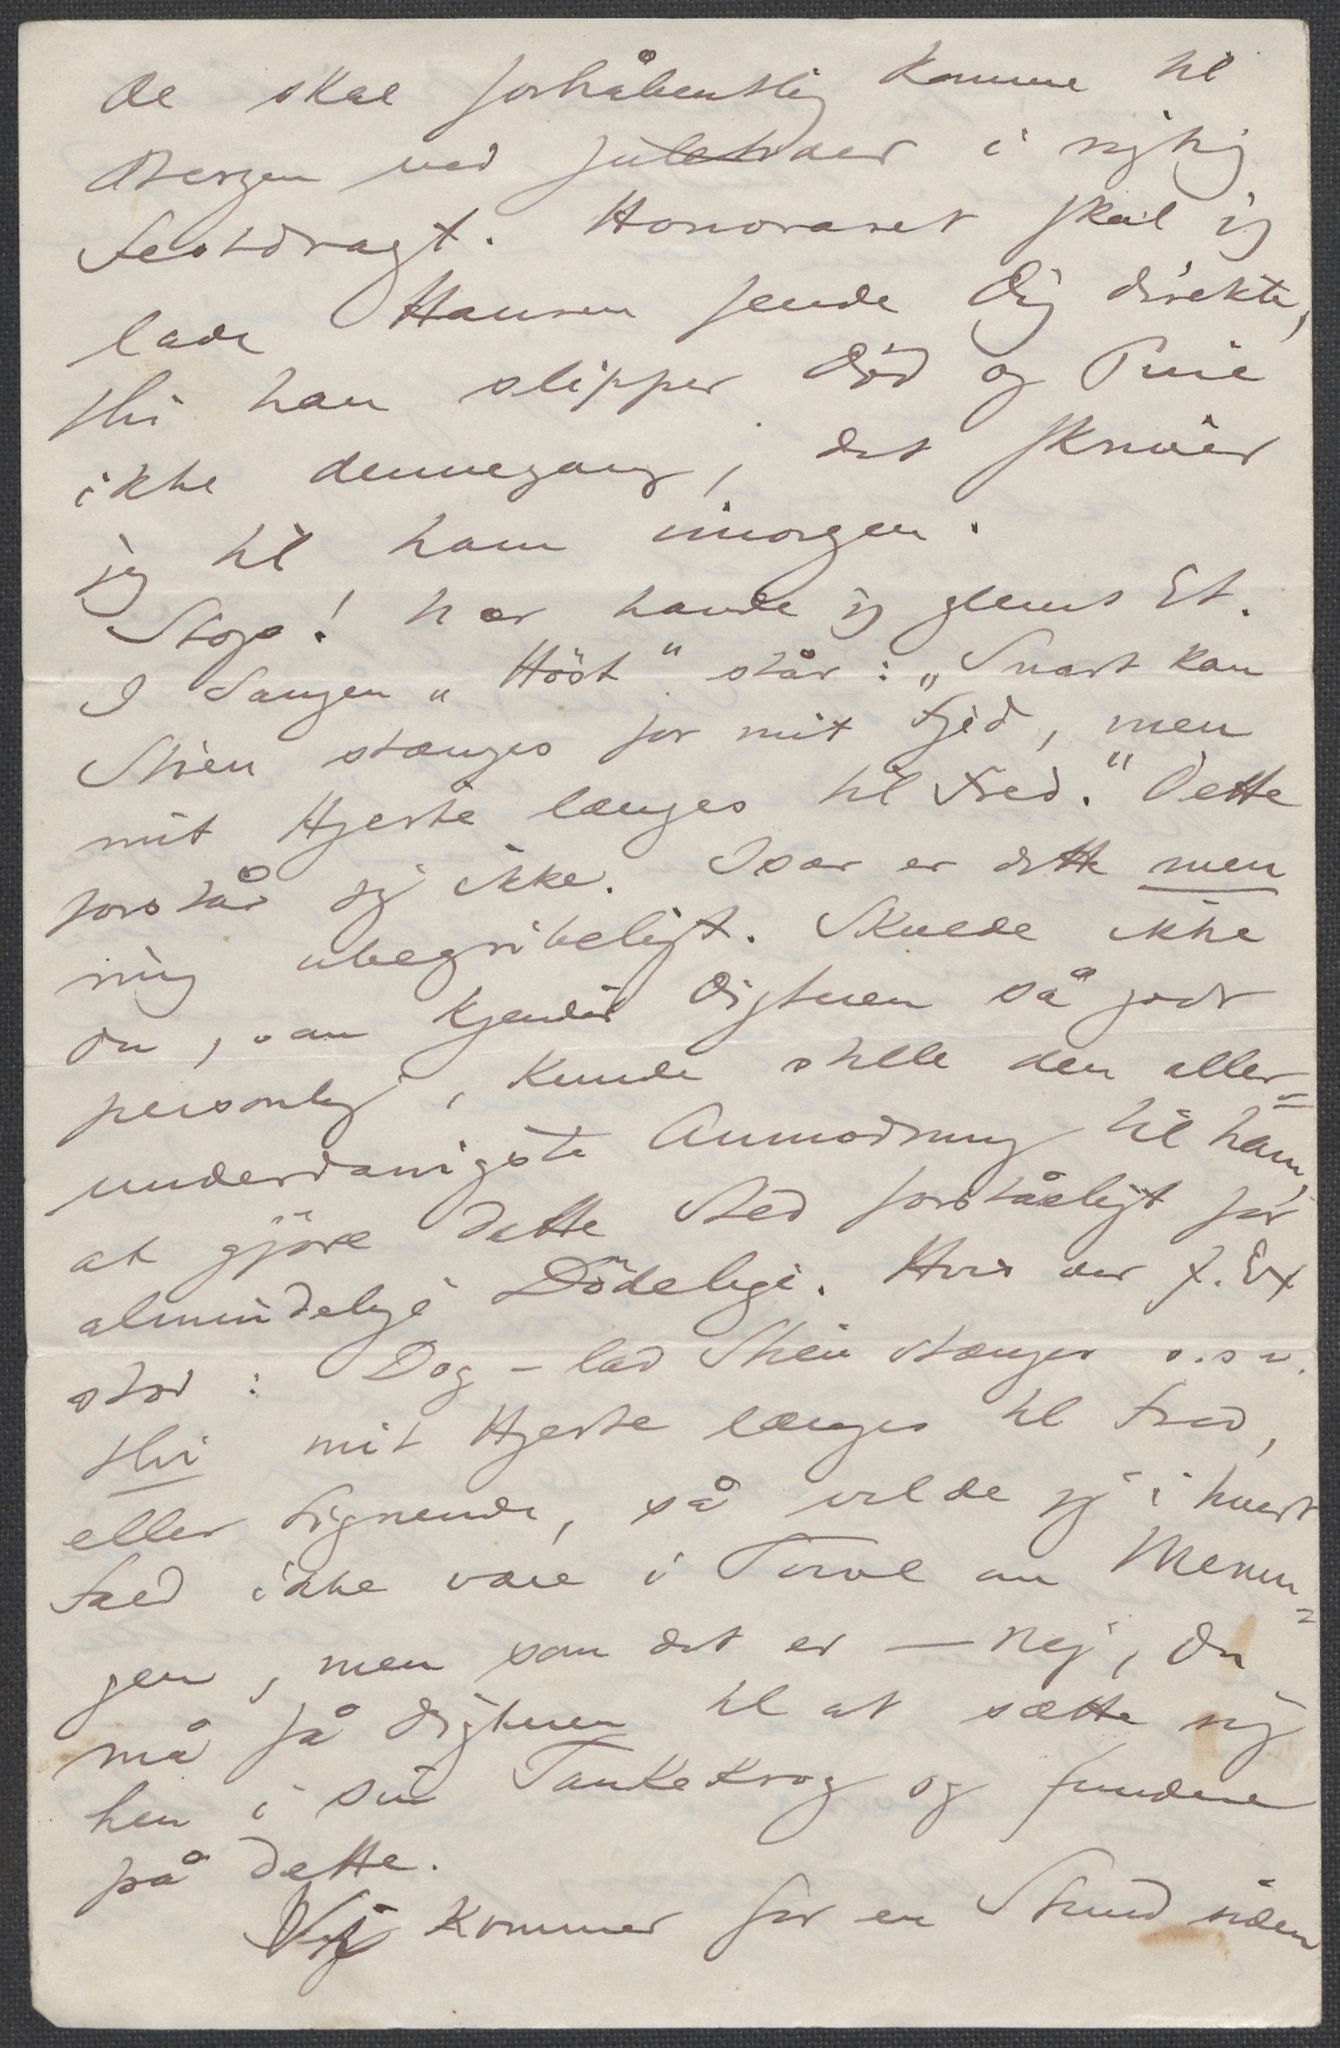 De skal forhåbentlig komme til
Bergen ved Juletider i rigtig
Festdragt. Honoraret skal jeg
lade Hansen sende Dig direkte,
thi han slipper Död og Pine
ikke dennegang, det skriver
jeg til ham imorgen.
Stop! her havde jeg glemt Et.
I Sangen „Höst“ står: „Snart kan
Stien stænges for mit Fjed, men
mit Hjerte længes til Fred.“ Dette
forstår jeg ikke. Især er dette men
mig ubegribeligt. Skulde ikke
du, som kjender Digteren så godt
personlig, kunde stille den aller=
underdanigste Anmodning til ham,
at gjöre dette Sted forståeligt for
almindelige Dödelige. Hvis der f. Ex
stod: Dog – lad Stien stænges o.s.v.
thi mit Hjerte længes til Fred,
eller Lignende, så vilde jeg i hvert
Fald ikke være i Tvivl om Menin=
gen, men som det er — nej, du
må få Digteren til at sætte sig
hen i sin Tankekrog og fundere
på dette.
Vi kommer for en Stund siden